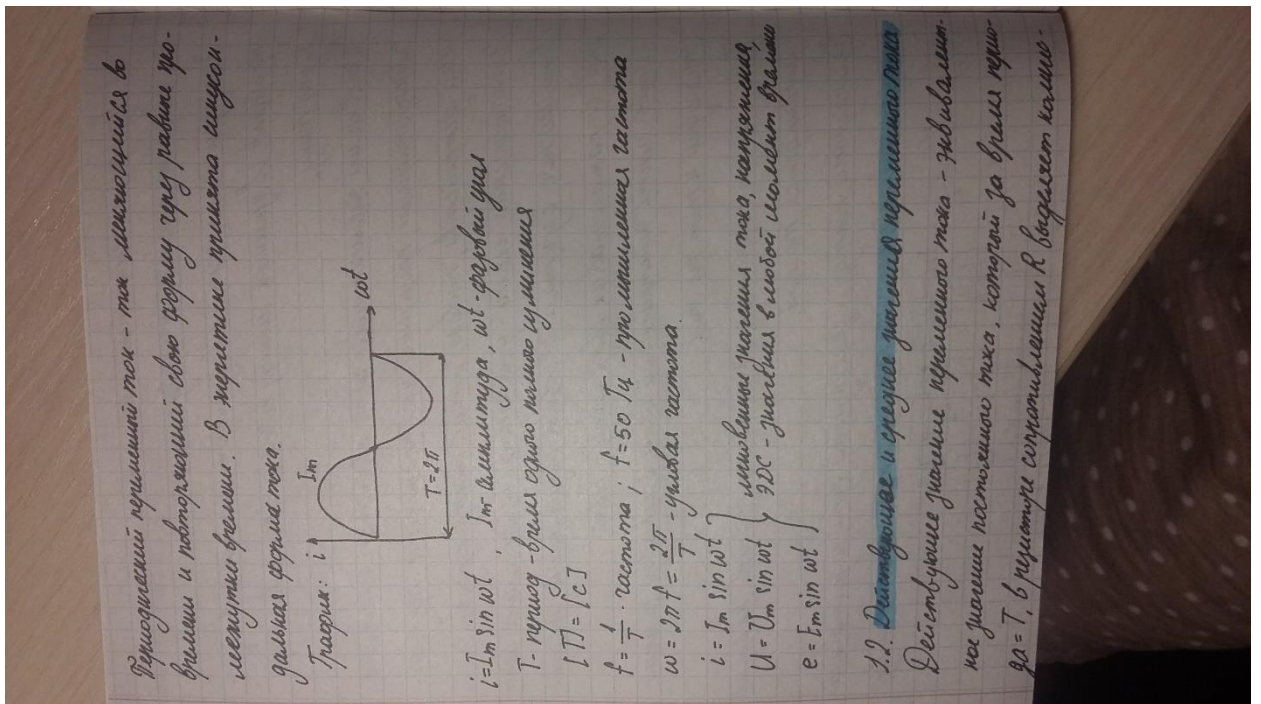 Периодический переменный ток - ток меняющийся во
времени и повторяющий свою форму через равные про-
межутки времени. В энергетике принята синусои-
дальная форма тока.
График: i
Im
ωt
T=2π
i=Im sin ωt ; Im - амплитуда, ωt - фазовый угол
T - период - время одного полного изменения
[T] = [c]
f = 1/T - частота ; f = 50 Гц - промышленная частота
ω = 2πf = 2π/T - угловая частота.
i = Im sin ωt
U = Um sin ωt
e = Em sin ωt
мгновенные значения тока, напряжения,
ЭДС - значения в любой момент времени
1.2. Действующее и среднее значения переменного тока
Действующее значение переменного тока - эквивалент-
ное значение постоянного тока, который за время перио-
да = T, в резисторе сопротивлением R выделяет количе-